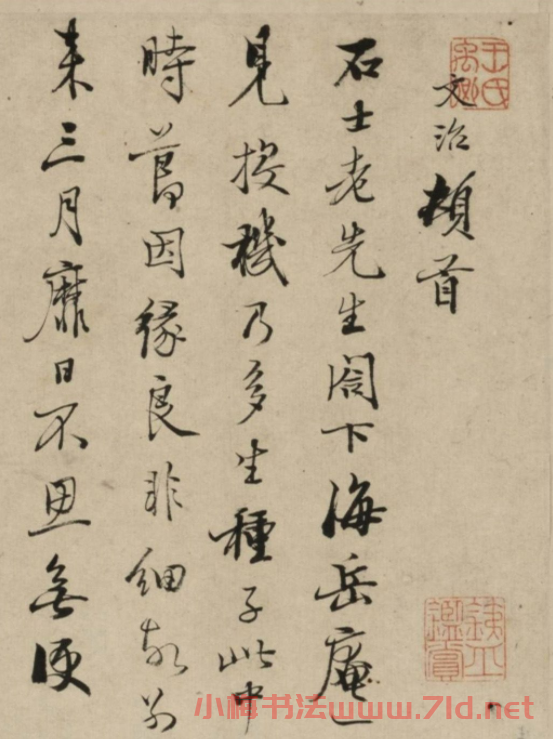 文治頓首
石士老先生閣下海岳庵一
見投機乃多生種子此中
時節因緣良非細故別
来三月靡日不思無便
小梅书法www.7ld.net